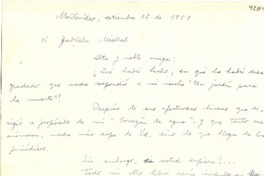 4284
Montevideo, setiembre 15 de 1951
A Gabriela Mistral
Alta y noble amiga:
¿Qué habré hecho, en qué la habré desa-
gradado que nada respondió a mi novela "Un jardín para
la muerte"?
Después de sus afectuosas líneas que di-
rigió a propósito de mi "Corazón de agua", y que tanto me
animaron, nada más supe de Vd. sino lo que llega de los
periódicos.
Sin embargo,
Todo mi otro libro será impreso en